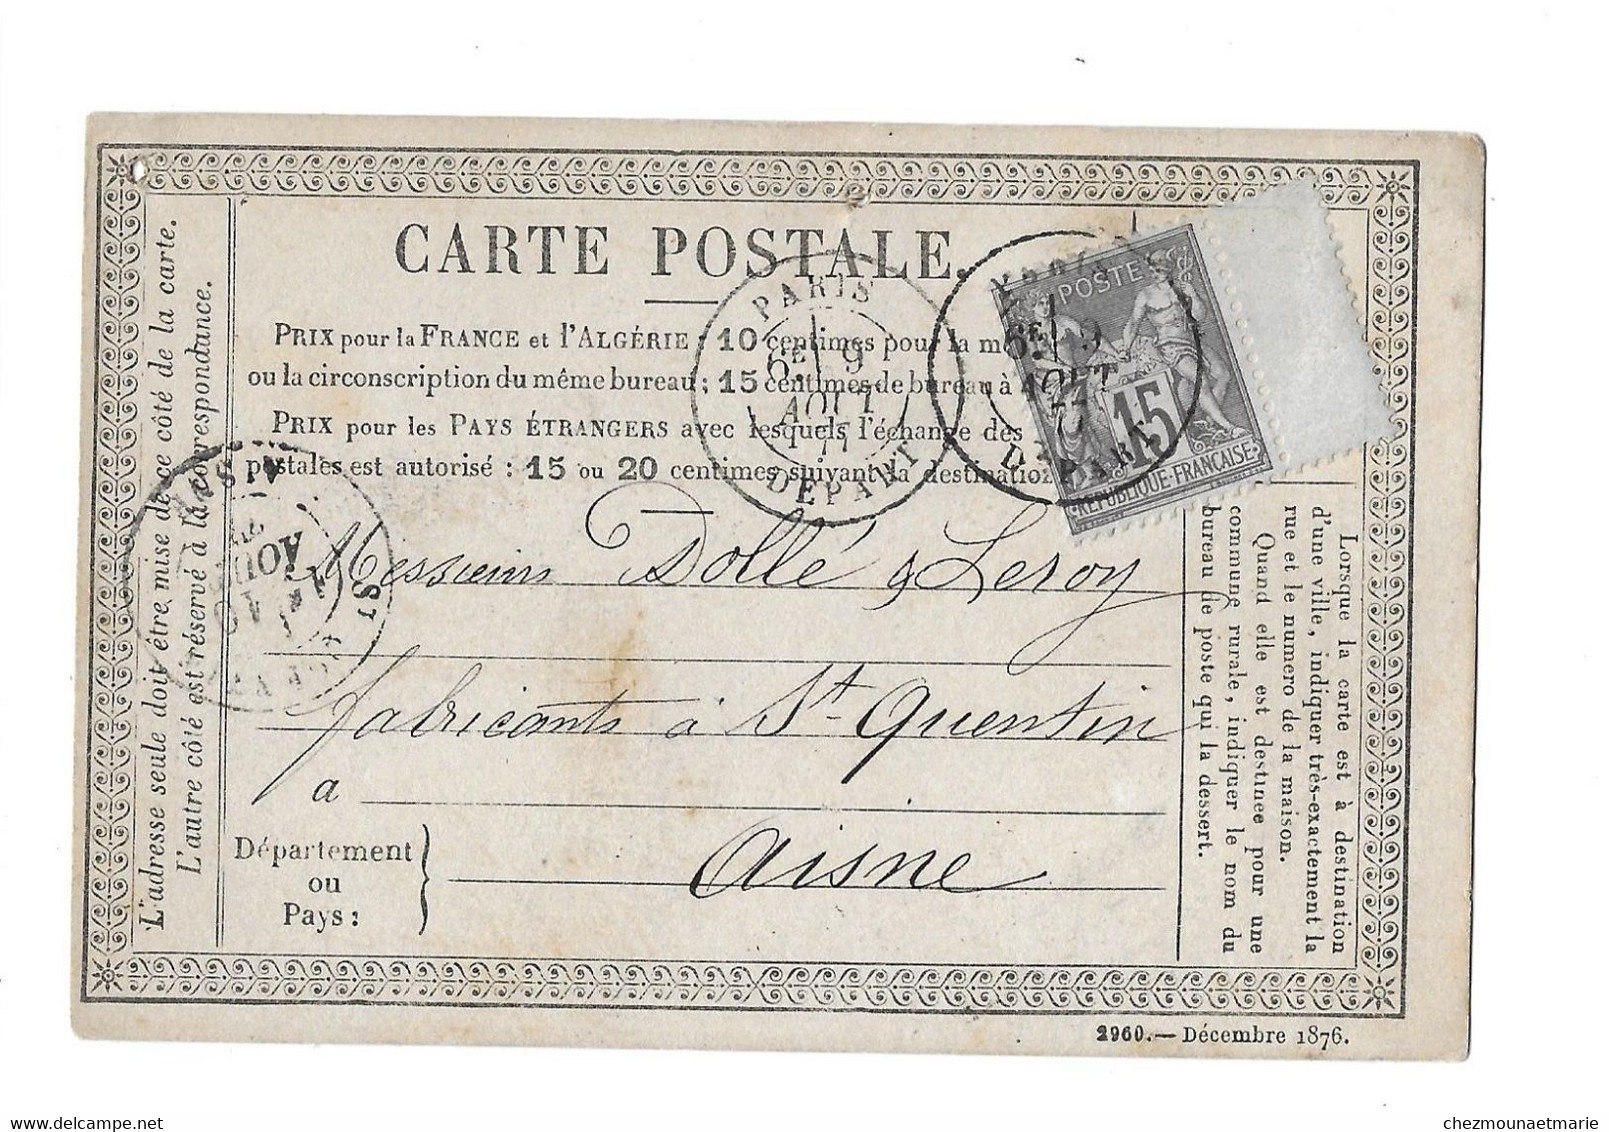 CARTE POSTALE.
PRIX pour la FRANCE et l'ALGÉRIE : 10 centimes pour la m
ou la circonscription du même bureau ; 15 centimes de bureau à
PRIX pour les PAYS ÉTRANGERS avec lesquels l'échange des
postales est autorisé : 15 ou 20 centimes suivant la destination
PARIS
6E 9
AOUT
77
DEPART
6E 9
AOUT
77
DEPART
POSTE
15
REPUBLIQUE-FRANÇAISE
L'adresse seule doit être mise de ce côté de la carte.
L'autre côté est réservé à la correspondance.
AOUT
Messieurs Dollé & Leroy
fabricants à St Quentin
à
Département
ou
Pays :
Aisne
Lorsque la carte est à destination
d'une ville, indiquer très-exactement la
rue et le numero de la maison.
Quand elle est destinée pour une
commune rurale, indiquer le nom du
bureau de poste qui la dessert.
2960.— Décembre 1876.
chezmounaetmarie